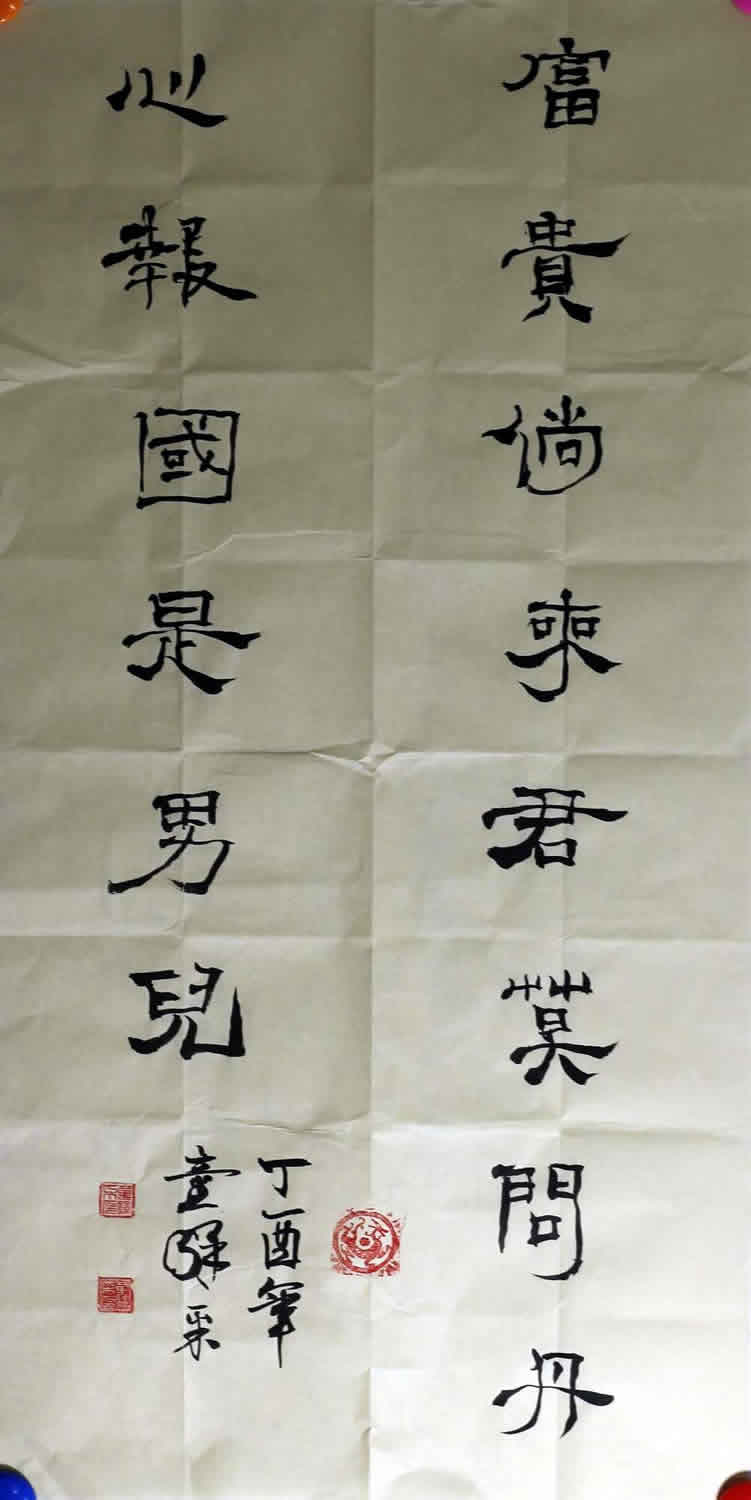 富貴倘來君莫問丹
心報國是男兒
丁酉年